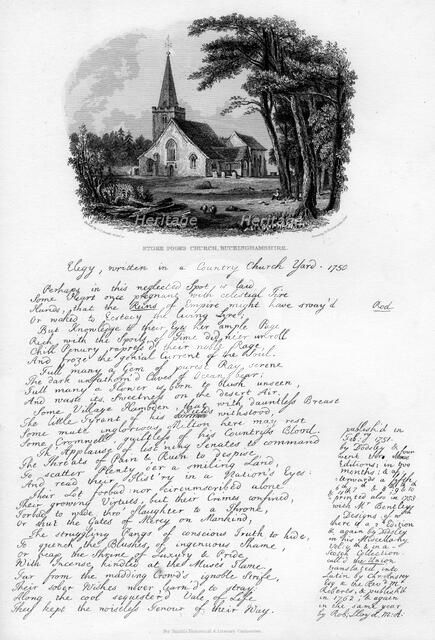 Heritage Heritage
STOKE POGES CHURCH, BUCKINGHAMSHIRE.
Elegy, written in a Country Church Yard. 1750
Perhaps in this neglected Spot is laid
Some Heart once pregnant with celestial Fire
Hands, that the Reins of Empire might have sway'd Rod
Or waked to Ecstacy the living Lyre,
But Knowledge to their eyes her ample Page
Rich with the Spoils of Time did ne'er unroll
Chill Penury repress'd their noble Rage
And froze the genial Current of the Soul.
Full many a Gem of purest Ray serene
The dark unfathom'd Caves of Ocean bear;
Full many a Flower is born to blush unseen,
And waste its Sweetness on the desert Air.
Some Village Hampden that with dauntless Breast
The little Tyrant of his Fields withstood,
Some mute inglorious Milton here may rest
Some Cromwell guiltless of his Country's Blood.
Th' Applause of list'ning Senates to command
The Threats of Pain & Ruin to despise,
To scatter Plenty o'er a smiling Land,
And read their Hist'ry in a Nation's Eyes:
Their Lot forbad: nor circumscribed alone
Their growing Virtues, but their Crimes confined,
Forbad to wade thro' Slaughter to a Throne,
Or shut the Gates of Mercy on Mankind,
The struggling Pangs of conscious Truth to hide,
To quench the Blushes of ingenuous Shame,
Or heap the Shrine of Luxury & Pride
With Incense, kindled at the Muse's Flame.
Far from the madding Crowd's ignoble Strife,
Their sober Wishes never learn'd to stray
Along the cool sequester'd Vale of Life
They kept the noiseless Tenour of their Way.
publish'd in
Feb:ry 1751.
by Dodsley & four
went thro'
Editions; in two
months; &
afterwards a fifth
6th 7th & 8th 9th &
printed also in 1753
with Mr Bentley's
Designs of wch
there is a 2d Edition
& again by Dodsley
in his Miscellany
Vol: 4th & in a
Scotch Collection
call'd the Union
translated into
Latin by Chr: Anstey
Esq & the Revd Mr
Roberts, & publish'd
in 1762; & again
in the same year
by Rob: Lloyd, M:A:
For Smith's Historical & Literary Curiosities.